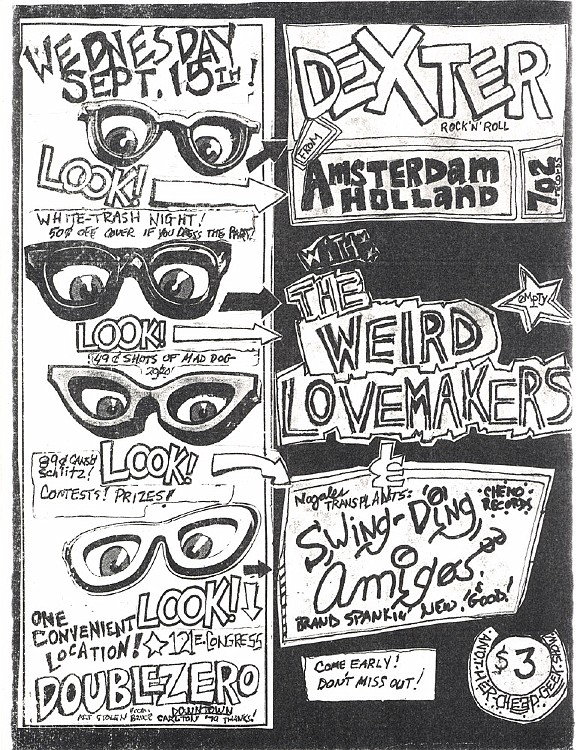 WEDNESDAY
SEPT. 15TH!
LOOK!
WHITE-TRASH NIGHT!
50¢ OFF COVER IF YOU DRESS THE PART!
LOOK!
49¢ SHOTS OF MAD DOG
20/20!
LOOK!
@99¢ CANS!
Schlitz!
CONTESTS! PRIZES!
LOOK!
ONE
CONVENIENT
LOCATION!
121 E. CONGRESS
DOUBLE ZERO
DOWNTOWN
ART STOLEN FROM BRUCE CARLTON '79 THANKS!
DEXTER
ROCK'N'ROLL
FROM
AMSTERDAM
HOLLAND
702
RECORDS
WITH
THE
WEIRD
LOVEMAKERS
EMPTY
&
Nogales
TRANSPLANTS:
"CHEMO"
RECORDS
Swing-Ding
amigos
BRAND SPANKIN' NEW & 'GOOD!'
COME EARLY!
DON'T MISS OUT!
$3
ANOTHER CHEEP GEEK SHOW